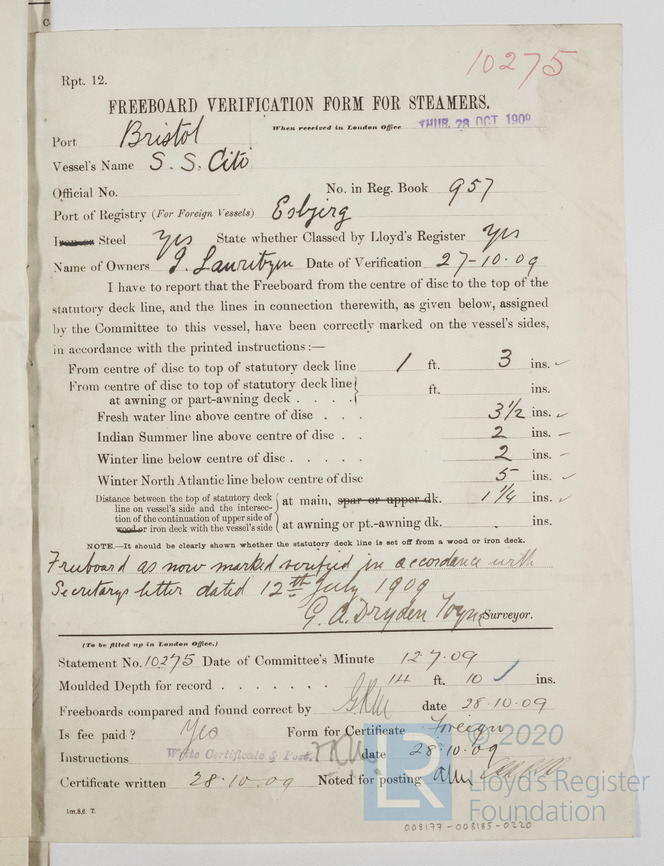 10275
Rpt. 12.
FREEBOARD VERIFICATION FORM FOR STEAMERS.
When received in London Office THUR. 28 OCT 1909
Port Bristol
Vessel's Name S. S. Cito
Official No. No. in Reg. Book 957
Port of Registry (For Foreign Vessels) Esbjerg
Iron or Steel yes State whether Classed by Lloyd's Register yes
Name of Owners J. Lauritzen Date of Verification 27-10-09
I have to report that the Freeboard from the centre of disc to the top of the
statutory deck line, and the lines in connection therewith, as given below, assigned
by the Committee to this vessel, have been correctly marked on the vessel's sides,
in accordance with the printed instructions :—
From centre of disc to top of statutory deck line 1 ft. 3 ins.
From centre of disc to top of statutory deck line
at awning or part-awning deck . . . . ft. ins.
Fresh water line above centre of disc . . . 3½ ins.
Indian Summer line above centre of disc . . 2 ins.
Winter line below centre of disc . . . . . 2 ins.
Winter North Atlantic line below centre of disc 5 ins.
Distance between the top of statutory deck
line on vessel's side and the intersec-
tion of the continuation of upper side of
wood or iron deck with the vessel's side
at main, spar or upper dk. 1¼ ins.
at awning or pt.-awning dk. ins.
NOTE.—It should be clearly shown whether the statutory deck line is set off from a wood or iron deck.
Freeboard as now marked verified in accordance with
Secretarys letter dated 12th July 1909
G. A. Dryden Surveyor.
(To be filled up in London Office.)
Statement No. 10275 Date of Committee's Minute 12.7.09
Moulded Depth for record . . . . . . . 14 ft. 10 ins.
Freeboards compared and found correct by date 28.10.09
Is fee paid ? Yes Form for Certificate Foreign
Instructions Write Certificate & Post. date 28.10.09
Certificate written 28.10.09 Noted for posting
1m.8.6. T.
© 2020
LR
Lloyd's Register
Foundation
008177-008185-0220